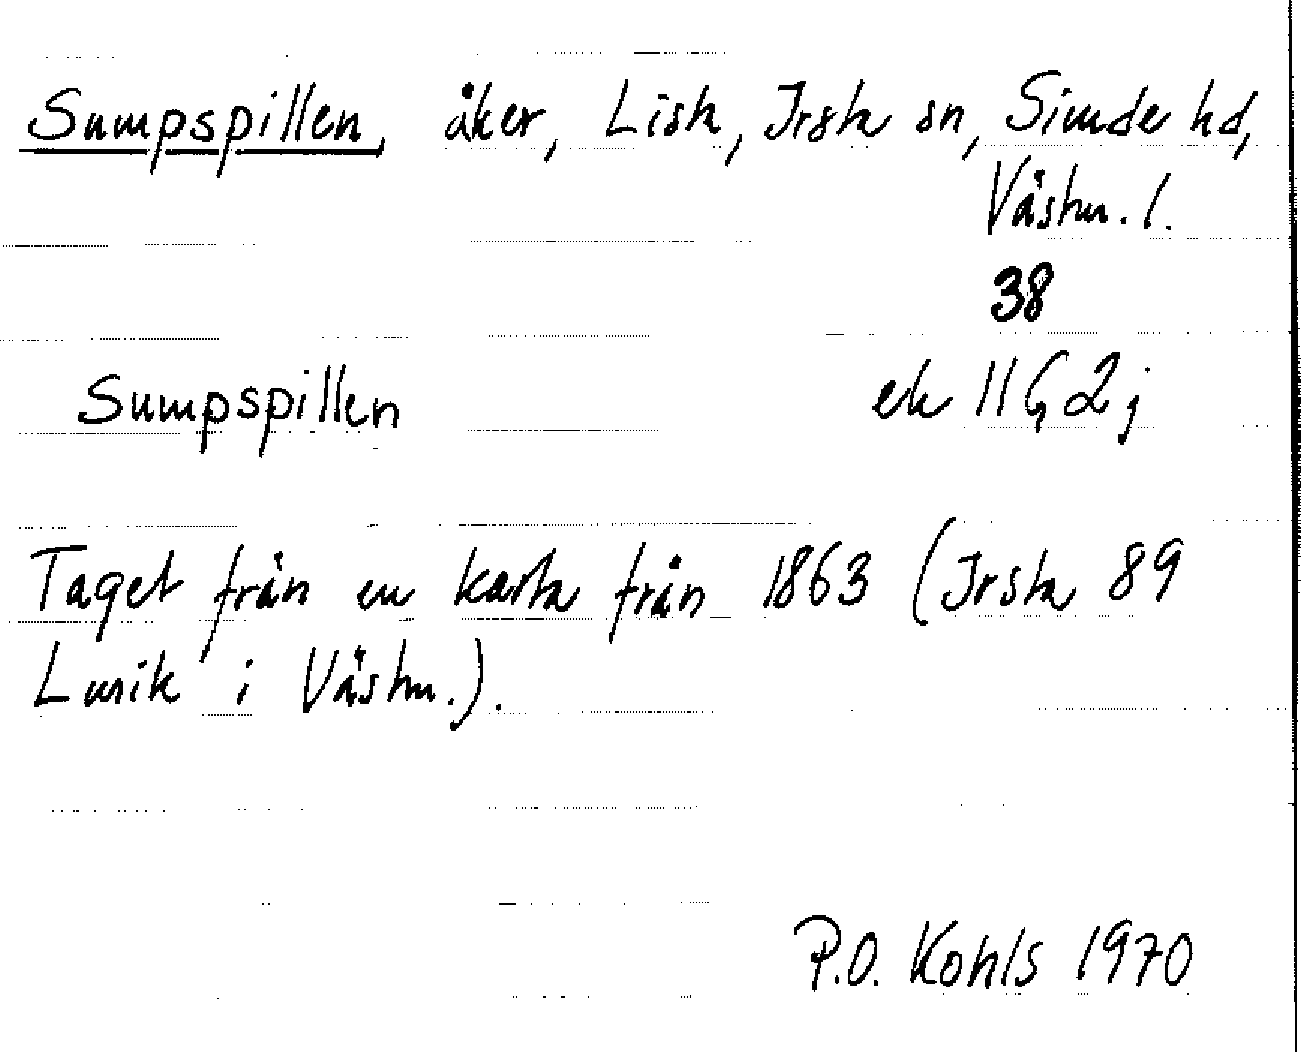 Sumpspillen, åker, Lista, Irsta sn, Siende hd,
Västm. l.
38
Sumpspillen ek 11G2j
Taget från en karta från 1863 (Irsta 89
i Västm.).
P.O. Kohls 1970